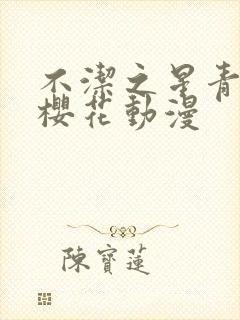 不潔之星青
櫻花動漫
陳寶蓮